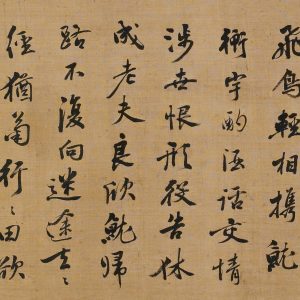 飛鳥輕相攜就
衡宇酌酒話交情
涉世恨形役告休
成老夫良欣就歸
路不復向迷途去々
徑猶菊行々田欲